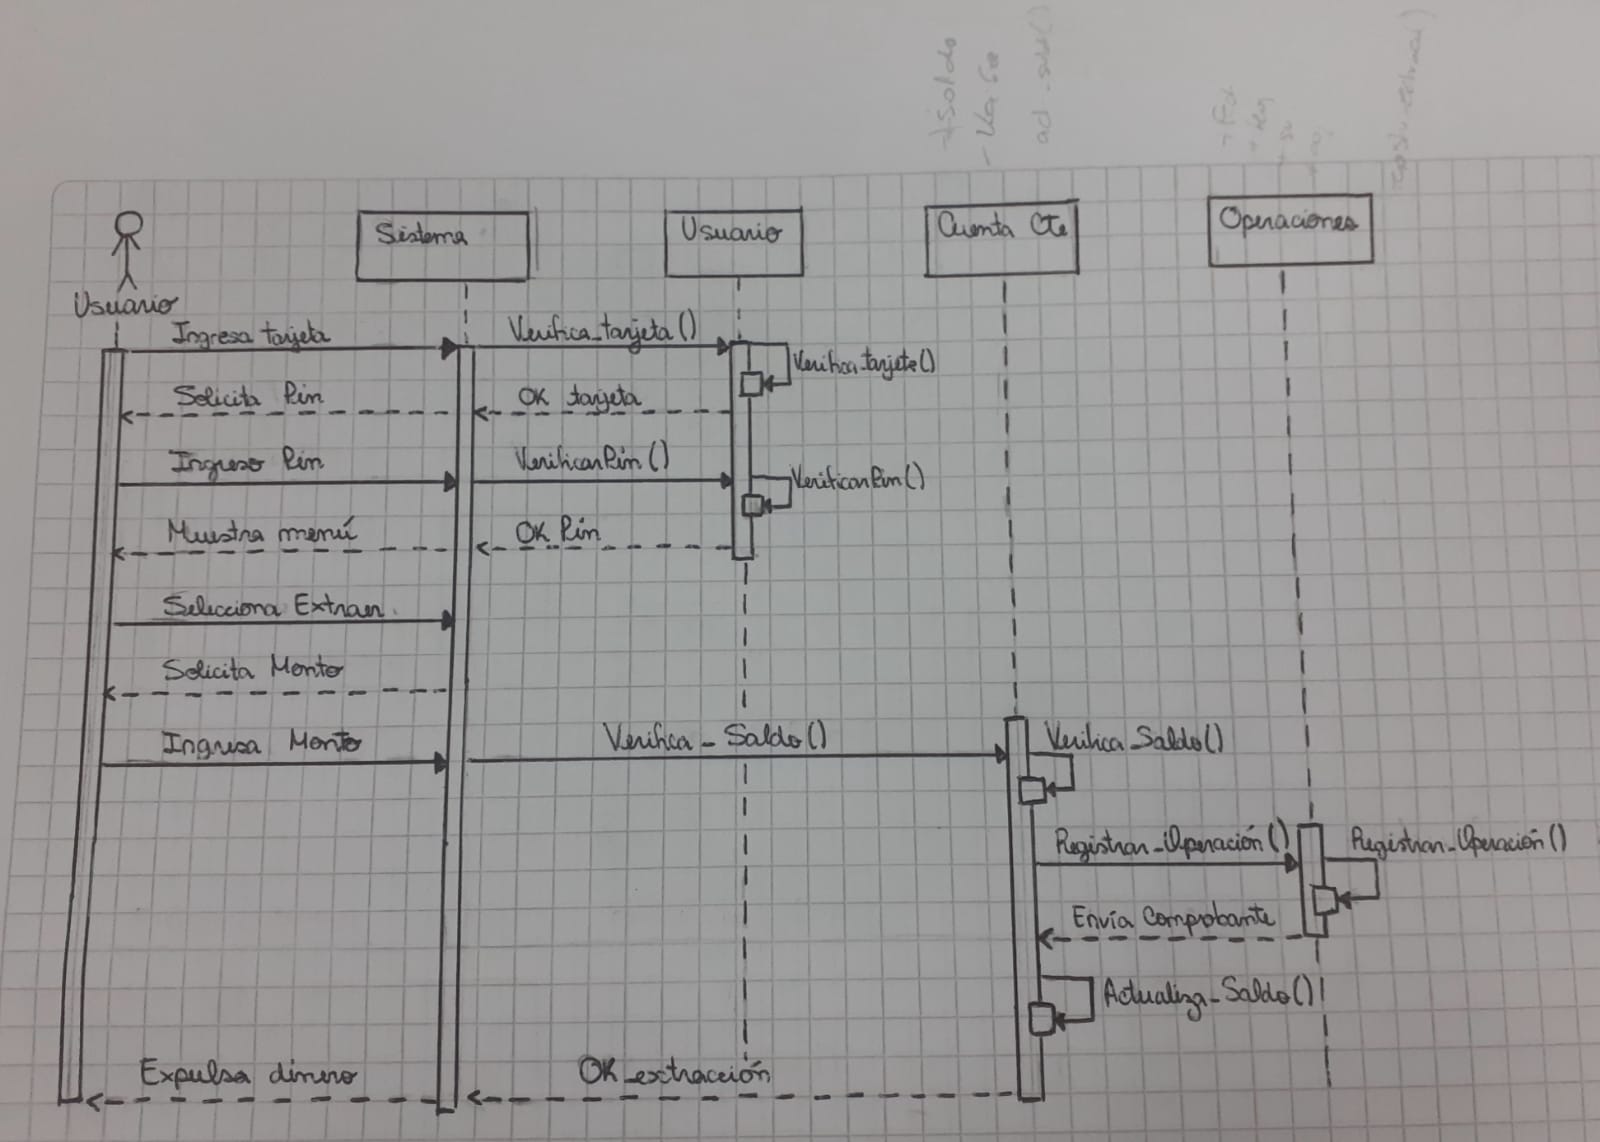 Sistema
Usuario
Cuenta Cte
Operaciones
Usuario
Ingresa tarjeta
Verifica_tarjeta()
Verifica_tarjeta()
Solicita Pin
OK tarjeta
Ingreso Pin
VerificarPin()
VerificarPin()
Muestra menú
OK Pin
Selecciona Extraer.
Solicita Monto
Ingresa Monto
Verifica_Saldo()
Verifica_Saldo()
Registrar_Operación()
Registrar_Operación()
Envía Comprobante
Actualiza_Saldo()
Expulsa dinero
OK_extracción